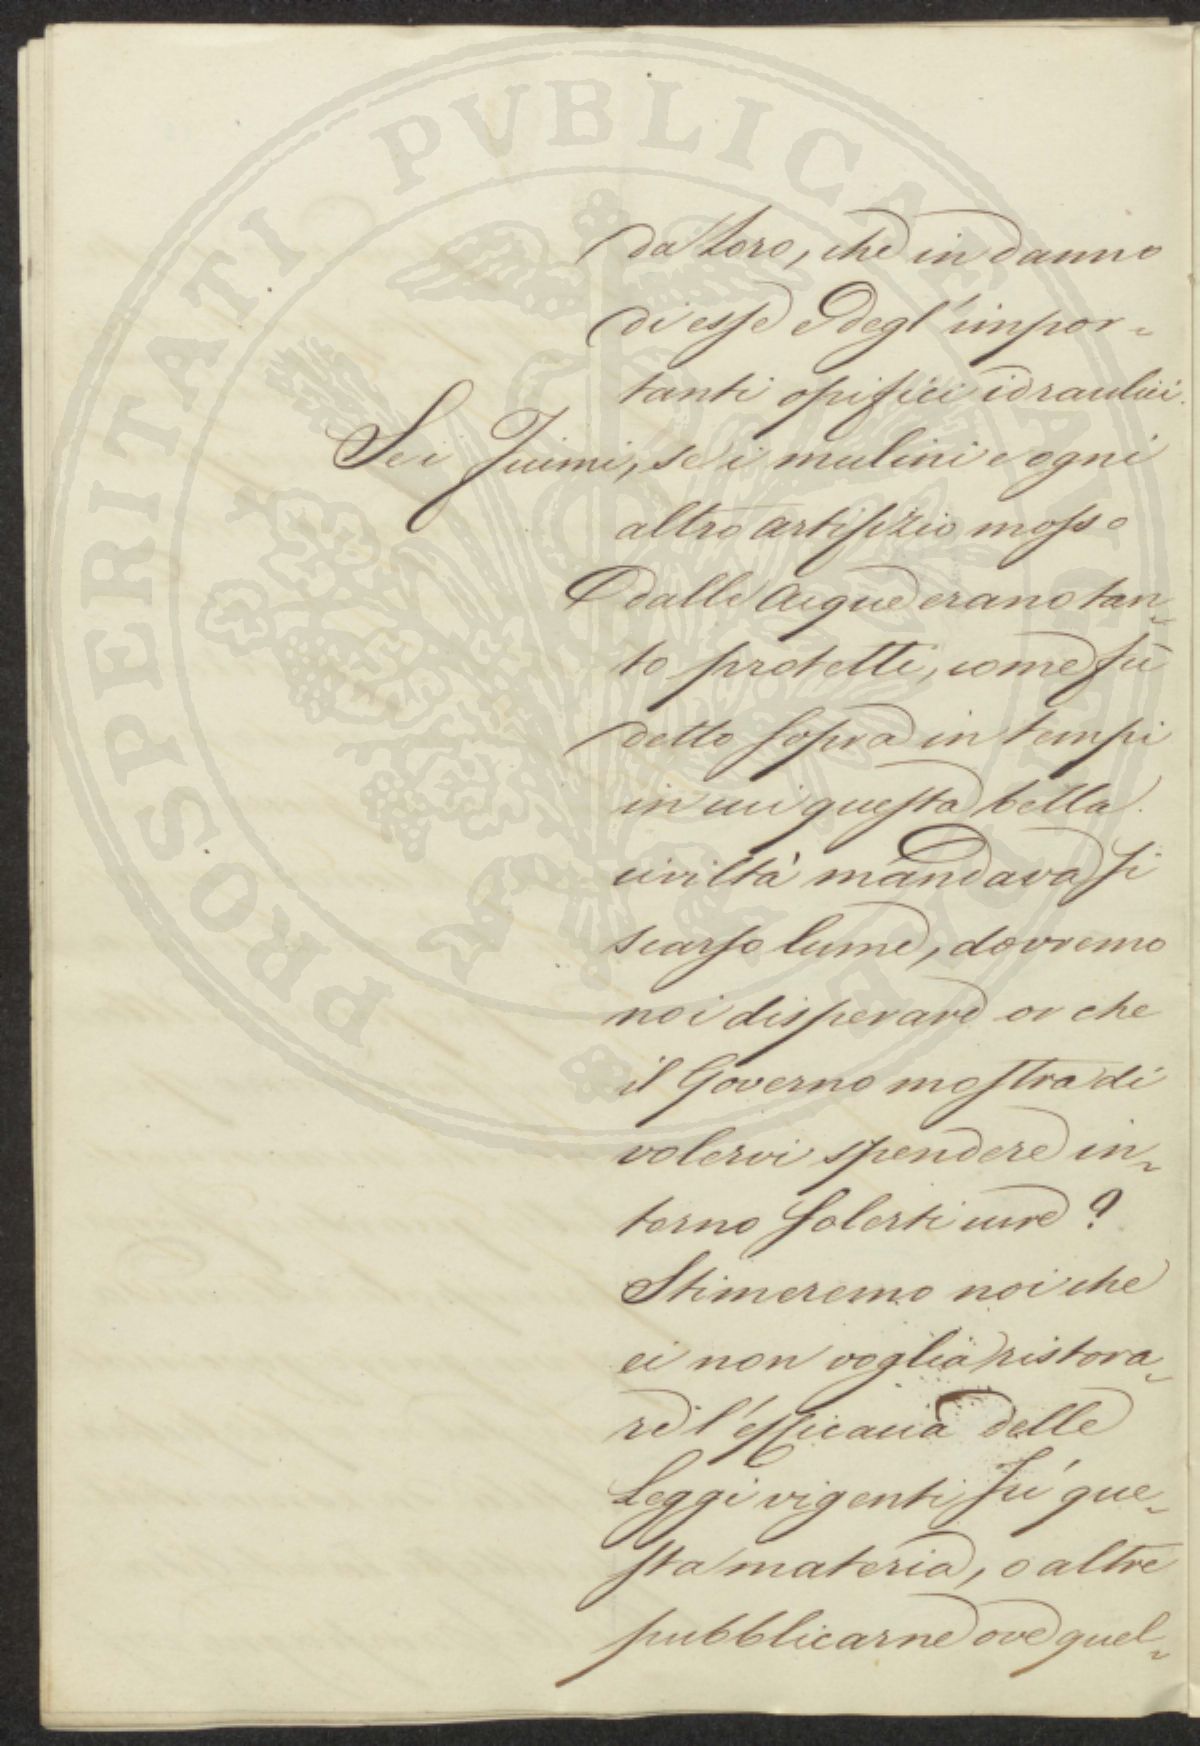 PROSPERITATI PVBLICAE AVGENDAE
da loro, che in danno
di esse e degl'impor-
tanti opifici idraulici.
Se i Fiumi, se i mulini e ogni
altro artifizio mosso
dalle acque erano tan-
to protetti, come fù
detto sopra in tempi
in cui questa bella
civiltà mandava sì
scarso lume, dovremo
noi disperare or che
il Governo mostra di
volervi spendere in-
torno solerti cure?
Stimeremo noi che
ei non voglia ristora-
re l'efficacia delle
Leggi vigenti sù que-
sta materia, o altre
pubblicarne ove quel-